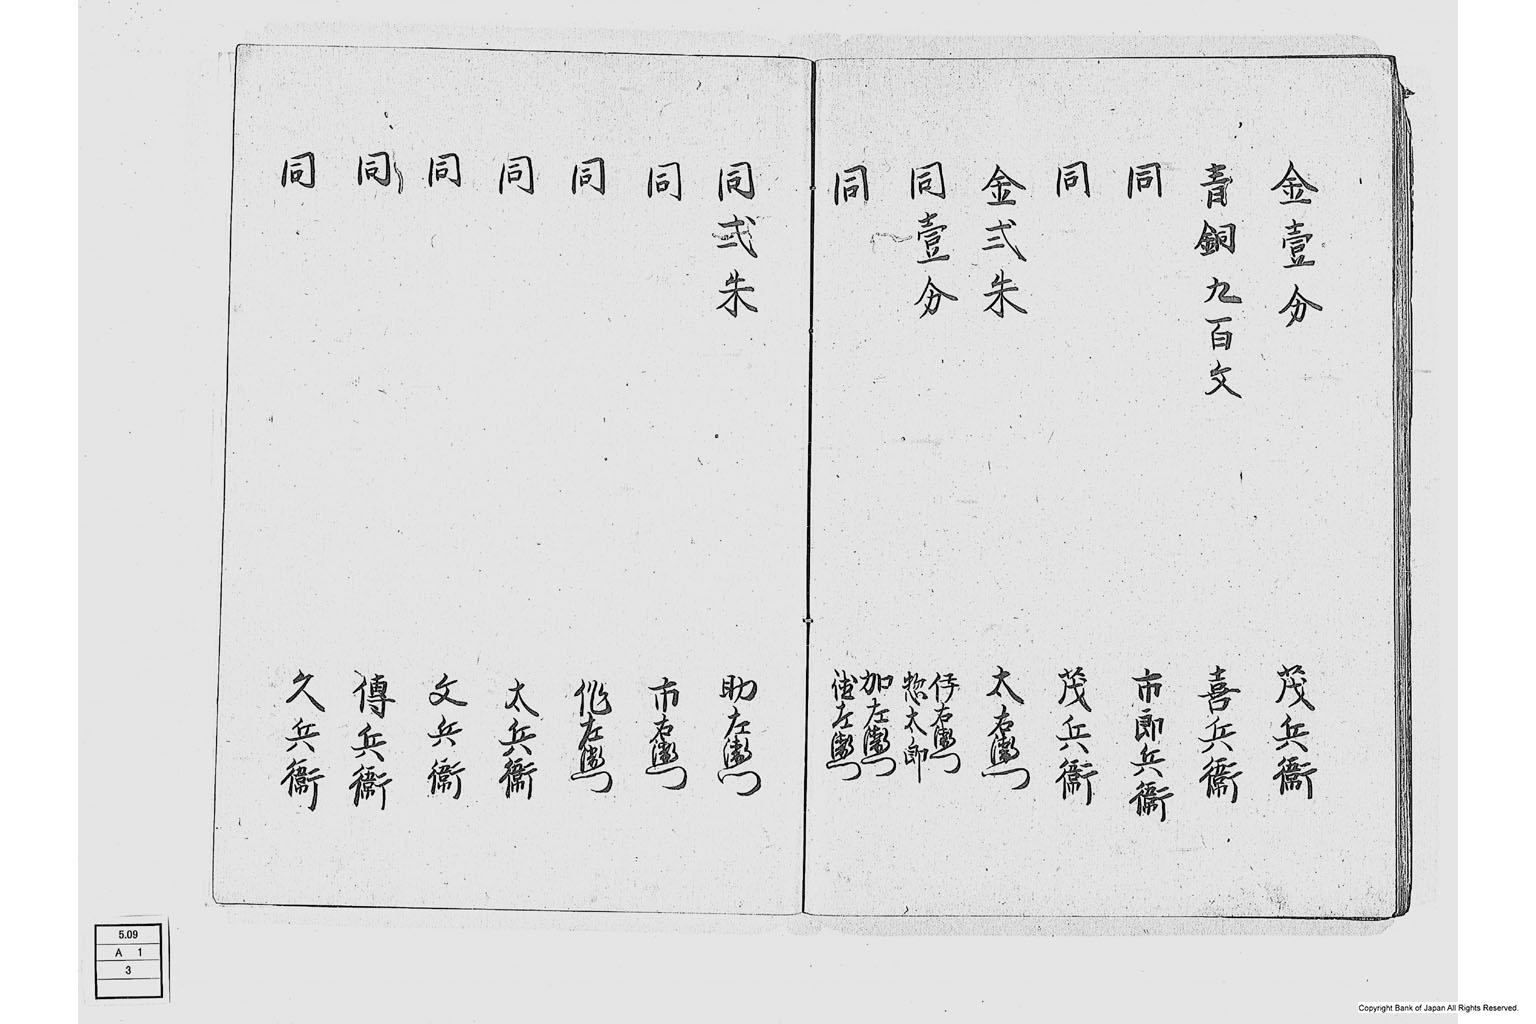 金壹分 茂兵衞
青銅九百文 喜兵衞
同 市郎兵衞
同 茂兵衞
金弍朱 太右衞門
同壹分 伃右衞門
惣太郎
同 加左衞門
左衞門
同弍朱 助左衞門
同 市右衞門
同 作左衞門
同 太兵衞
同 文兵衞
同 傳兵衞
同 久兵衞
5.09
A 1
3
Copyright Bank of Japan All Rights Reserved.